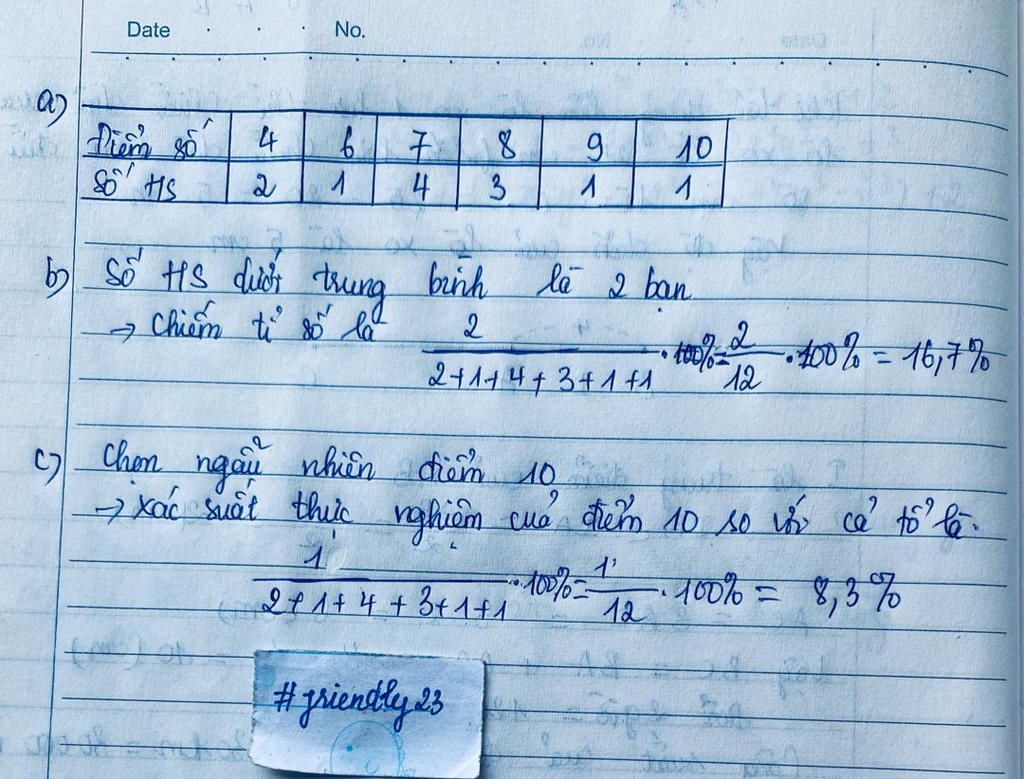 Date . . . No.
a)
Điểm số 4 6 7 8 9 10
Số HS 2 1 4 3 1 1
b) Số HS dưới trung bình là 2 bạn
→ Chiếm tỉ số là 2 / 2+1+4+3+1+1 . 100% = 2 / 12 . 100% = 16,7%
c) Chọn ngẫu nhiên điểm 10
→ Xác suất thực nghiệm của điểm 10 so với cả tổ là:
1 / 2+1+4+3+1+1 . 100% = 1 / 12 . 100% = 8,3%
#friendly23